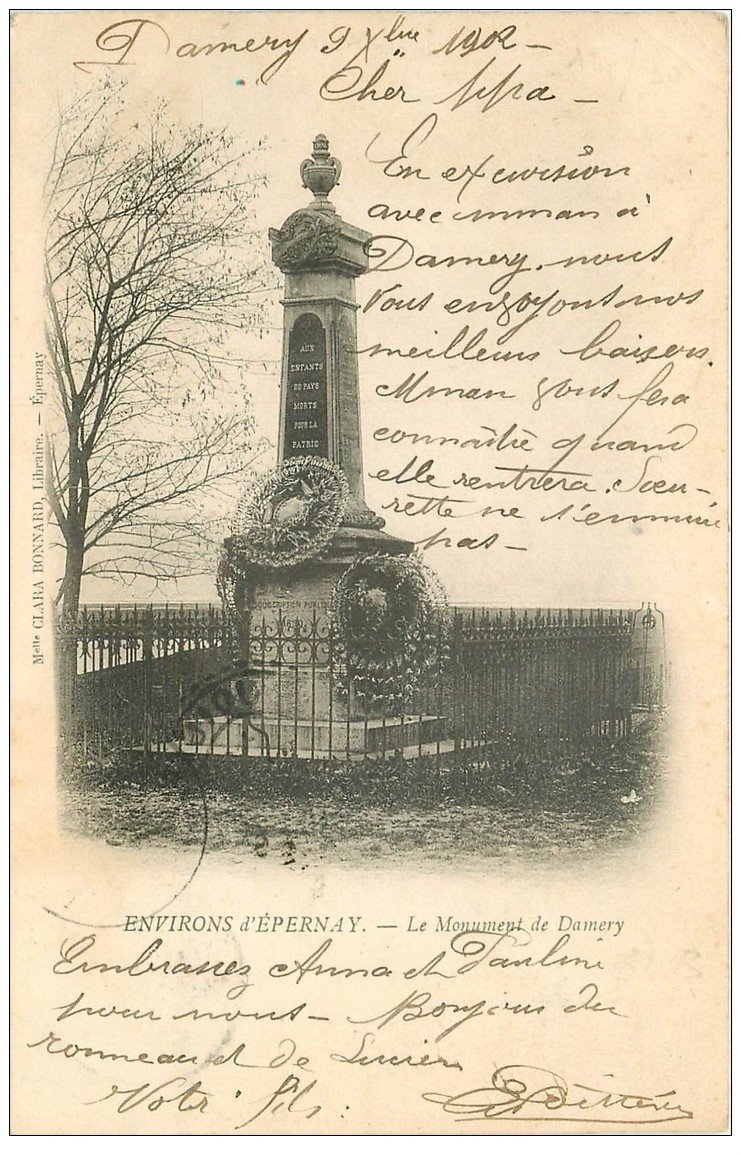 Damery 9 Xbre 1902 -
Cher Papa -
En excursion
avec mman à
Damery, nous
vous envoyons nos
meilleurs baisers.
Mman vous fera
connaître quand
elle rentrera. Sœu-
rette ne s'ennuie
pas -
AUX
ENFANTS
DU PAYS
MORTS
POUR LA
PATRIE
SOUSCRIPTION PUBLIQUE
Melle CLARA BONNARD, Libraire. — Épernay
ENVIRONS d'ÉPERNAY. — Le Monument de Damery
Embrassez Anna et Pauline
pour nous - Bonjour du
et de Lucien
Votre fils :